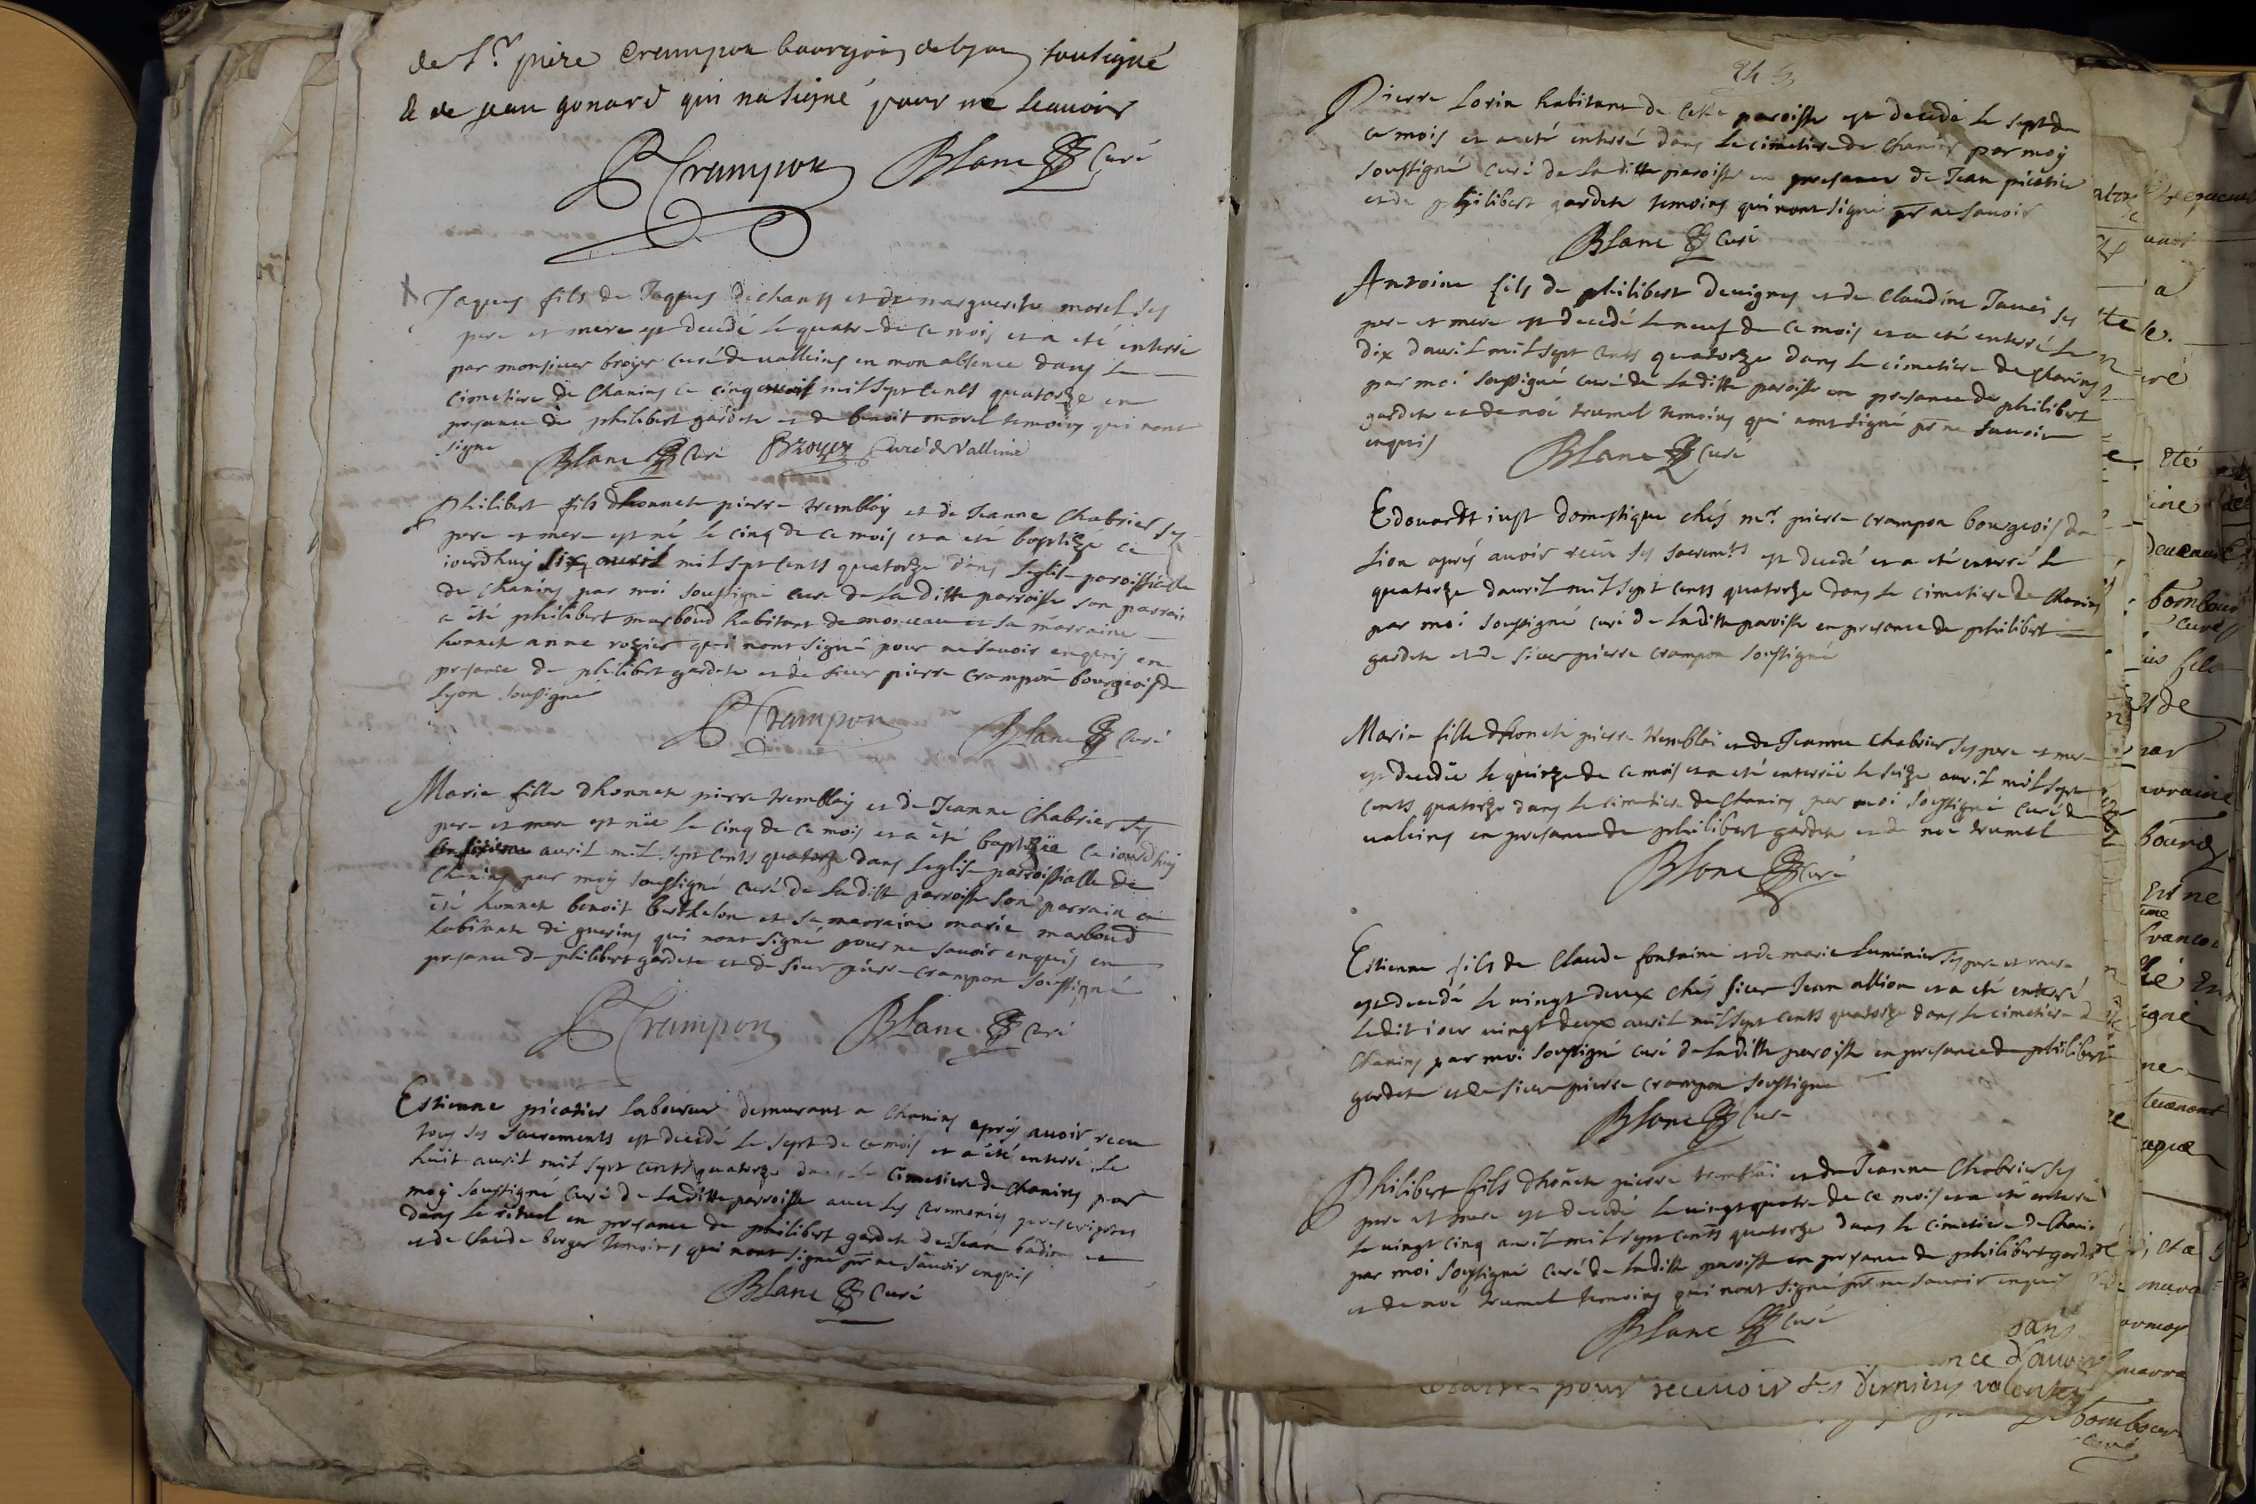 de Sr. piere Crampon bourgois de lyon sousigné
& de jean gonard qui na signé pour ne scauoir
Crampon Blanc Curé
Jaques fils de Jaques dechants et de marguerite morel ses
pere et mere est decedé le quatre de ce mois et a eté enterré
par monsieur broyer curé de valleins en mon absence dans le
cimetiere de Chanins ce cinq avril mil sept cents quatorze en
presance de philibert gardete et de benoit morel temoins qui nont
signe
Blanc Curé Broyer Curé de Vallins
Philibert fils dhonnete pierre tremblay et de Jeanne Chabrier ses
pere et mere est né le cinq de ce mois et a eté baptize ce
iourdhuy six auril mil sept cents quatorze dans leglise paroissialle
de Chanins par moi soussigné curé de la ditte parroisse son parrain
a été philibert marboud habitant de monceau et sa marraine
honnete anne rozier qui nont signé pour ne sauoir enquis en
presance de philibert gardete et de sieur pierre crampon bourgeois de
lyon soussigné
Crampon Blanc Curé
Marie fille dhonnete pierre tremblay et de Jeanne Chabrier ses
pere et mere est née le cinq de ce mois et a été baptizée ce iourdhuy
auril mil sept cents quatorze dans leglise parroissialle de
Chanins par moy soussigné curé de la ditte parroisse son parrain a
été honnete benoit berthelon et sa marraine marie marboud
habitants de guerins qui nont signé pour ne sauoir enquis en
presance de philibert gardete et de sieur pierre crampon soussigné
Crampon Blanc Curé
Estienne picatier laboureur demurant a Chanins apres auoir receu
tous ses sacrements est decedé le sept de ce mois et a été enterré le
huit auril mil sept cents quatorze dans le cimetiere de Chanins par
moy soussigné curé de la ditte parroisse auec les ceremonies prescriptes
dans le rituel en presance de philibert gardete de Jean badion et
et de Claude berger temoins qui nont signé pr ne sauoir enquis
Blanc Curé
Pierre Lorin habitant de cette paroisse est decedé le sept de
ce mois et a eté enterré dans le cimetiere de Chanins par moy
soussigné curé de la ditte paroisse en presance de Jean picatier
et de philibert gardete temoins qui nont signé pr ne sauoir
Blanc Curé
Antoine fils de philibert deuignes et de Claudine Tauei ses
pere et mere est decedé le neuf de ce mois et a eté enterré le
dix dauril mil sept cents quatorze dans le cimetiere de Chanins
par moi soussigné curé de la ditte paroisse en presance de philibert
gardete et de noé trumel temoins qui nont signé pr ne sauoir
enquis
Blanc Curé
Edouardt iust domestique chés mr. pierre crampon bourgeois de
lion aprés auoir receu ses sacremts est decedé et a eté enterré le
quatorze dauril mil sept cents quatorze dans le cimetiere de Chanins
par moi soussigné curé de la ditte paroisse en presance de philibert
gardete et de sieur pierre crampon soussigné
Marie fille dhonete pierre tremblai et de Jeanne chabrier ses pere et mere
est decedée le quinze de ce mois et a eté enterrée le seize auril mil sept
cents quatorze dans le cimetiere de Chanins par moi soussigné curé de
valeins en presance de philibert gardete et de noé trumel
Blanc Curé
Estienne fils de Claude fontaine et de marie Luminier ses pere et mere
est decedé le vingt deux chés sieur Jean allion et a eté enterré
ledit iour vingt deux auril mil sept cents quatorze dans le cimetiere de
Chanins par moi soussigné curé de la ditte paroisse en presance de philibert
gardete et de sieur pierre crampon soussigné
Blanc Curé
Philibert fils dhonete pierre tremblai et de Jeanne Chabrier ses
pere et mere est decedé le vingt quatre de ce mois et a eté enterré
le vingt cinq auril mil sept cents quatorze dans le cimetiere de Chani
par moi soussigné curé de la ditte paroisse en presance de philibert gardete
et de noé trumel temoins qui nont signé pr ne sauoir enquis
Blanc Curé
pour receuoir ses dernieres volontes
bombour
curé